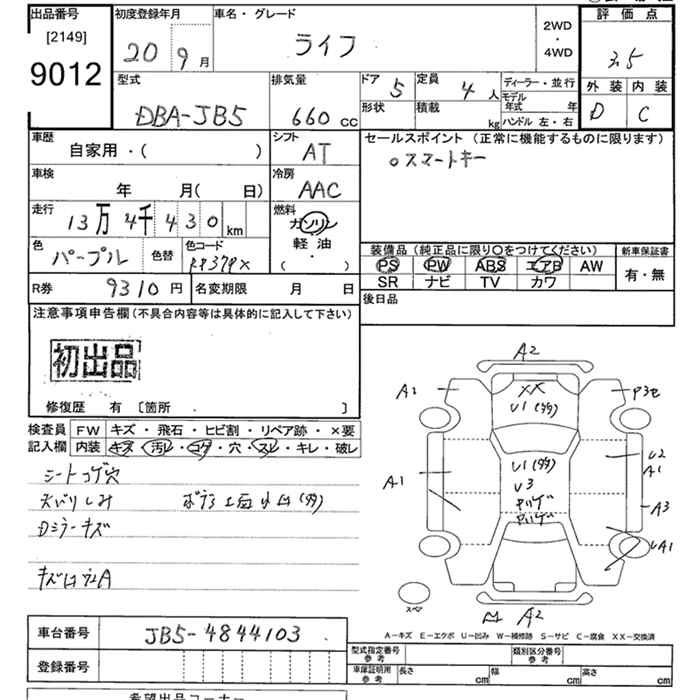 出品番号 初度登録年月 車名・グレード 2WD・4WD 評価点
[2149]
9012
20 9月 ライフ 3.5
型式 排気量 ドア 5 定員 4人 ディーラー・並行 外装 内装
DBA-JB5 660cc 形状 積載 kg モデル年式 年 D C
ハンドル 左・右
車歴 シフト セールスポイント (正常に機能するものに限ります)
自家用・( ) AT ○スマートキー
車検 冷房
年 月( 日) AAC
走行 燃料
13万4千430km ガソリン
軽油
・
( )
色 色替 色コード 装備品 (純正品に限り○をつけてください) 新車保証書
パープル RP37PX PS PW ABS エアB AW 有・無
SR ナビ TV カワ
R券 9310円 名変期限 月 日 後日品
注意事項申告欄 (不具合内容等は具体的に記入して下さい)
初出品
修復歴 有 〔箇所 〕
検査員 FW キズ・飛石・ヒビ割・リペア跡・×要
記入欄 内装 キズ・汚レ・コゲ・穴・スレ・キレ・破レ
シートコゲ穴
天バリしみ
Dミラーキズ
A2
A1
XX
U1
U1
U3
A1
U2
A1
A3
A1
スペア
A2
A-キズ E-エクボ U-凹み W-補修跡 S-サビ C-腐食 XX-交換済
車台番号 JB5-4844103
登録番号
型式指定番号 参考 類別区分番号 参考
車庫証明用 参考 長さ cm 幅 cm 高さ cm
希望出品コーナー